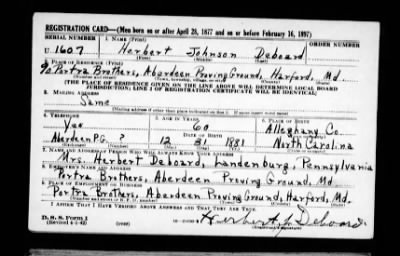 REGISTRATION CARD—(Men born on or after April 28, 1877 and on or before February 16, 1897)
SERIAL NUMBER 1. NAME (Print) ORDER NUMBER
U 1607 Herbert Johnson Deboard
(First) (Middle) (Last)
2. PLACE OF RESIDENCE (Print)
% Portra Brothers, Aberdeen Proving Ground, Harford, Md.
(Number and street) (Town, township, village, or city) (County) (State)
[THE PLACE OF RESIDENCE GIVEN ON THE LINE ABOVE WILL DETERMINE LOCAL BOARD
JURISDICTION; LINE 2 OF REGISTRATION CERTIFICATE WILL BE IDENTICAL]
3. MAILING ADDRESS
Same
[Mailing address if other than place indicated on line 2. If same insert word same]
4. TELEPHONE 5. AGE IN YEARS 6. PLACE OF BIRTH
Yes 60 Alleghany Co.
DATE OF BIRTH (Town or county)
Aberdeen P.G. ? 12 31 1881 North Carolina
(Exchange) (Number) (Mo.) (Day) (Yr.) (State or country)
7. NAME AND ADDRESS OF PERSON WHO WILL ALWAYS KNOW YOUR ADDRESS
Mrs. Herbert Deboard, Landenburg, Pennsylvania
8. EMPLOYER'S NAME AND ADDRESS
Portra Brothers, Aberdeen Proving Ground, Md
9. PLACE OF EMPLOYMENT OR BUSINESS
Portra Brothers, Aberdeen Proving Ground, Harford, Md.
(Number and street or R. F. D. number) (Town) (County) (State)
I AFFIRM THAT I HAVE VERIFIED ABOVE ANSWERS AND THAT THEY ARE TRUE.
D. S. S. Form 1
(Revised 4-1-42) Herbert J. Deboard
(Registrant's signature)